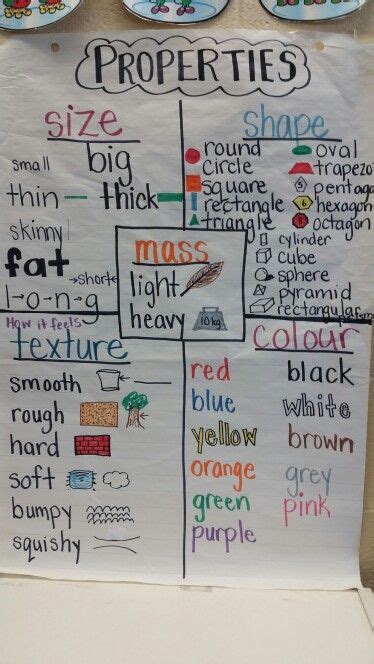 PROPERTIES
size
small big
thin thick
skinny
fat
→short←
l-o-n-g
shape
round
circle
square
rectangle
triangle
oval
trapezo
5 pentago
6 hexagon
8 octagon
cylinder
cube
sphere
pyramid
rectangular prism
mass
light
heavy 10kg
How it feels
texture
smooth
rough
hard
soft
bumpy
squishy
colour
red
blue
yellow
orange
green
purple
black
white
brown
grey
pink